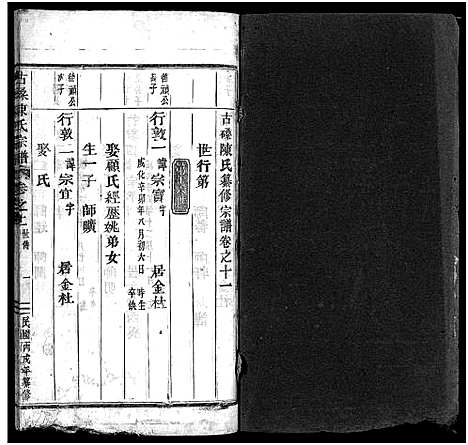 古磉陳氏纂修宗譜卷之十一
世行第
德禎公
長子
行敦一 諱宗寳字 居金杜
成化辛卯年八月初六日 時生
辛 娶
娶顧氏經歷姚弟女
生一子 師曠
德禎公
次子
行敦二 諱宗宜字 居金杜
娶 氏
古磉陳氏宗譜 卷之十一 世傳 一 民國丙戌年纂修